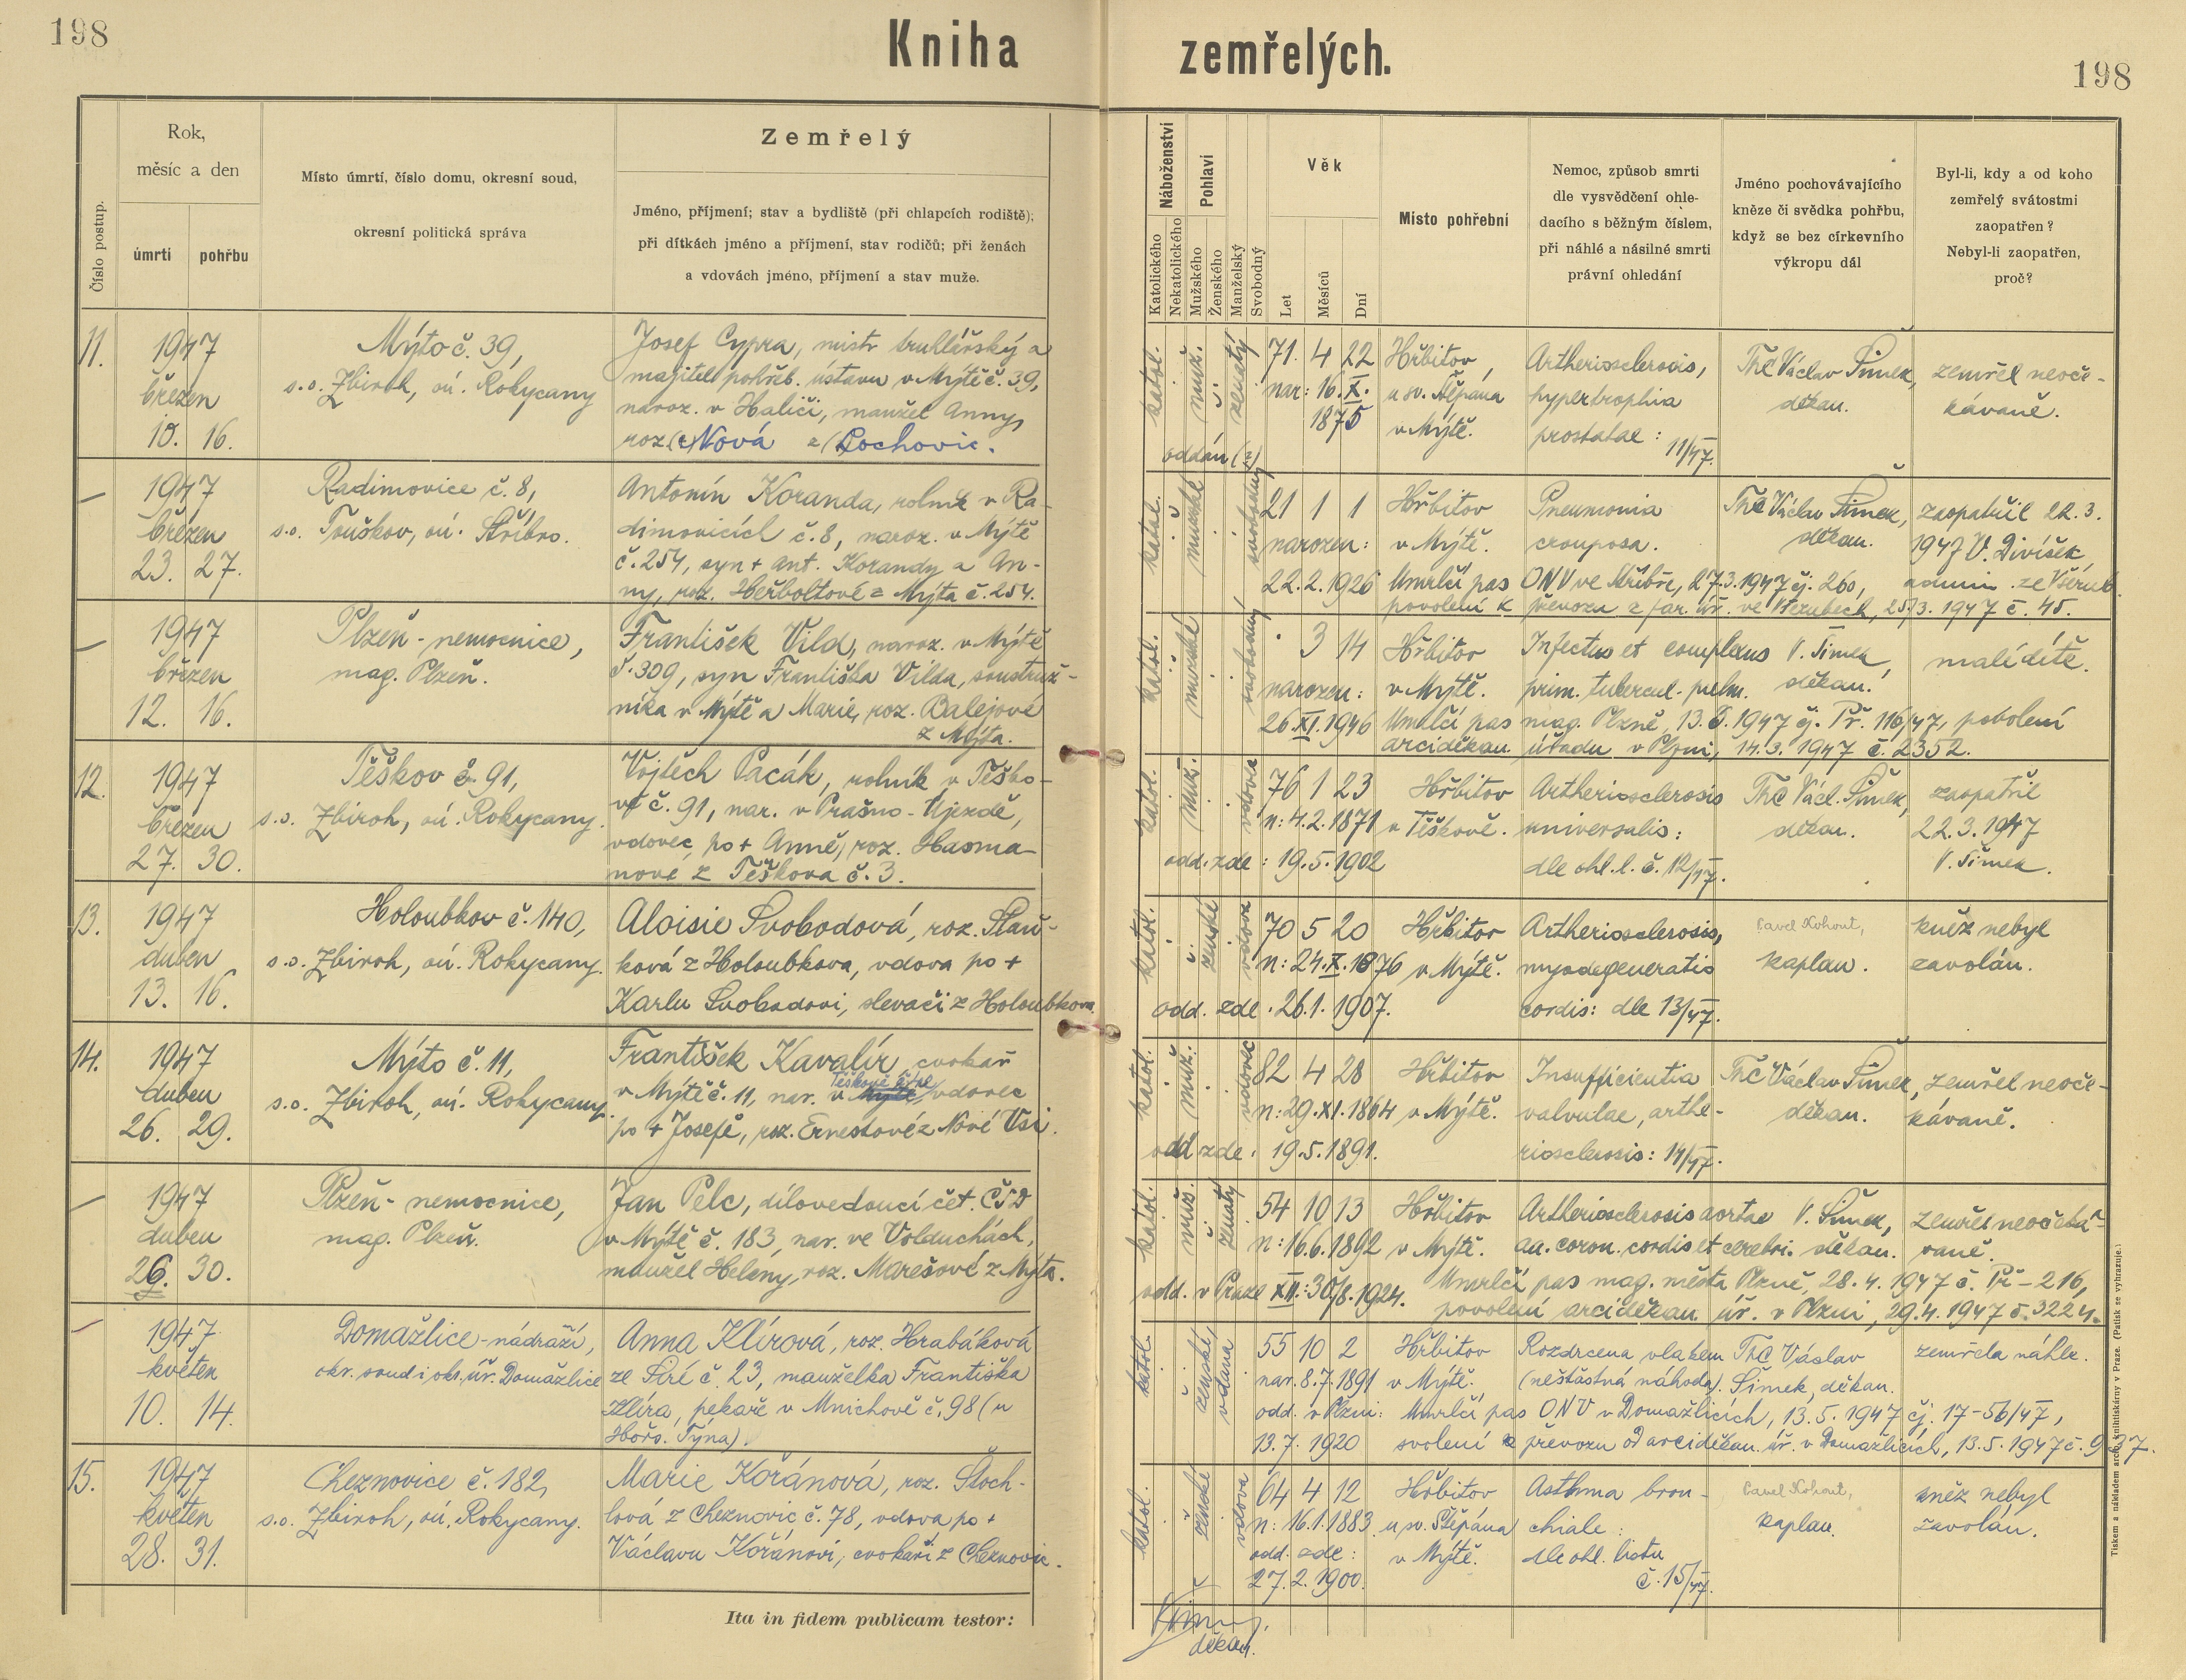 198
Kniha zemřelých.
198
Číslo postup.
Rok,
měsíc a den
úmrtí
pohřbu
Místo úmrtí, číslo domu, okresní soud,
okresní politická správa
Zemřelý
Jméno, příjmení; stav a bydliště (při chlapcích rodiště);
při dítkách jméno a příjmení, stav rodičů; při ženách
a vdovách jméno, příjmení a stav muže.
Náboženství
Katolického
Nekatolického
Pohlaví
Mužského
Ženského
Manželský
Svobodný
Věk
Let
Měsíců
Dní
Místo pohřební
Nemoc, způsob smrti
dle vysvědčení ohle-
dacího s běžným číslem,
při náhlé a násilné smrti
právní ohledání
Jméno pochovávajícího
kněze či svědka pohřbu,
když se bez církevního
výkropu dál
Byl-li, kdy a od koho
zemřelý svátostmi
zaopatřen?
Nebyl-li zaopatřen,
proč?
11.
1947
březen
10. 16.
Mýto č. 39,
s.o. Zbiroh, oú. Rokycany
Josef Cypra, mistr truhlářský a
majitel pohřeb. ústavu v Mýtě č. 39,
naroz. v Haliči, manžel Anny,
roz. (e) Nová z (Lochovic.
katol.
muž.
ženatý
71. 4 22
nar: 16. X.
1875
oddán (n)
Hřbitov
u sv. Štěpána
v Mýtě.
Artheriosclerosis,
hypertrophia
prostatae:
11/47.
ThC Václav Šimek,
děkan.
zemřel neoče-
kávaně.
—
1947
březen
23. 27.
Radimovice č. 8,
s.o. Touškov, oú. Stříbro.
Antonín Koranda, rolník v Ra-
dimovicích č. 8, naroz. v Mýtě
č. 254, syn + Ant. Korandy a An-
ny, roz. Heřboltové z Mýta č. 254.
katol.
mužské
svobodný
21 1 1
narozen:
22. 2. 1926
Hřbitov
v Mýtě.
Pneumonia
crouposa.
ThC Václav Šimek,
děkan.
zaopatřil 22. 3.
1947 V. Divíšek
admin. ze Všerub.
Umrlčí pas ONV ve Stříbře, 27. 3. 1947 čj. 260,
povolení k převozu z far. úř. ve Všerubech, 25/3. 1947 č. 45.
—
1947
březen
12. 16.
Plzeň - nemocnice,
mag. Plzeň.
František Vild, naroz. v Mýtě
č. 309, syn Františka Vilda, soustruž-
níka v Mýtě a Marie, roz. Balejové
z Mýta.
katol.
mužské
svobodný
. 3 14
narozen:
26. XI. 1946
Hřbitov
v Mýtě.
Infectus et complexus
prim. tubercul. pulm.
V. Šimek,
děkan.
malé dítě.
Umrlčí pas mag. Plzně, 13. 3. 1947 čj. Př. 116/47, povolení
arciděkan. úřadu v Plzni, 14. 3. 1947 č. 2352.
12.
1947
březen
27. 30.
Těškov č. 91,
s.o. Zbiroh, oú. Rokycany.
Vojtěch Pacák, rolník v Těško-
vě č. 91, nar. v Prašno-Újezdě,
vdovec po + Anně, roz. Hasma-
nové z Těškova č. 3.
katol.
muž.
vdovec
76 1 23
n: 4. 2. 1871
odd. zde: 19. 5. 1902
Hřbitov
v Těškově.
Artheriosclerosis
universalis:
dle ohl. l. č. 12/47.
ThC Václ. Šimek,
děkan.
zaopatřil
22. 3. 1947
V. Šimek.
13.
1947
duben
13. 16.
Holoubkov č. 140,
s.o. Zbiroh, oú. Rokycany.
Aloisie Svobodová, roz. Slaň-
ková z Holoubkova, vdova po +
Karlu Svobodovi, slevači z Holoubkova.
katol.
ženské
vdova
70 5 20
n: 24. X. 1876
odd. zde. 26. 1. 1907.
Hřbitov
v Mýtě.
Artheriosclerosis,
myodegeneratio
cordis: dle 13/47.
Pavel Kohout,
kaplan.
kněz nebyl
zavolán.
14.
1947
duben
26. 29.
Mýto č. 11,
s.o. Zbiroh, oú. Rokycany.
František Kavalír, cvokař
v Mýtě č. 11, nar. v Mýtě, vdovec
po + Josefě, roz. Ernestové z Nové Vsi.
katol.
muž.
vdovec
82 4 28
n: 29. XI. 1864
odd zde. 19. 5. 1891.
Hřbitov
v Mýtě.
Insufficientia
valvulae, arthe-
riosclerosis: 14/47.
ThC Václav Šimek,
děkan.
zemřel neoče-
kávaně.
—
1947
duben
26. 30.
Plzeň - nemocnice,
mag. Plzeň.
Jan Pelc, dílovedoucí čet. ČSD
v Mýtě č. 183, nar. ve Volduchách,
manžel Heleny, roz. Marešové z Mýta.
katol.
muž.
ženatý
54 10 13
n: 16. 6. 1892
odd. v Praze XII.: 30/8. 1924.
Hřbitov
v Mýtě.
Artheriosclerosis aortae
aa. coron. cordis et cerebri.
V. Šimek,
děkan.
zemřel neočeká-
vaně.
Umrlčí pas mag. města Plzně, 28. 4. 1947 č. Př - 216,
povolení arciděkan. úř. v Plzni, 29. 4. 1947 č. 3224.
—
1947
květen
10. 14.
Domažlice-nádraží,
okr. soud i okr. úř. Domažlice
Anna Klírová, roz. Hrabáková
ze Siré č. 23, manželka Františka
Klíra, pekaře v Mnichově č. 98 (u
Horš. Týna).
katol.
ženské,
vdaná
55 10 2
nar. 8. 7. 1891
odd. v Plzni:
13. 7. 1920
Hřbitov
v Mýtě.
Rozdrcena vlakem
(nešťastná náhoda).
ThC Václav
Šimek, děkan.
zemřela náhle.
Umrlčí pas ONV v Domažlicích, 13. 5. 1947 čj. 17-56/47,
svolení k převozu od arciděkan. úř. v Domažlicích, 13. 5. 1947 č. 937.
15.
1947
květen
28. 31.
Cheznovice č. 182,
s.o. Zbiroh, oú. Rokycany.
Marie Kořánová, roz. Štoch-
lová z Cheznovic č. 78, vdova po +
Václavu Kořánovi, cvokaři z Cheznovic.
katol.
ženské
vdova
64 4 12
n: 16. 1. 1883
odd. zde:
27. 2. 1900.
Hřbitov
u sv. Štěpána
v Mýtě.
Asthma bron-
chiale:
dle ohl. listu
č. 15/47.
Pavel Kohout,
kaplan.
kněz nebyl
zavolán.
Ita in fidem publicam testor:
Šimek,
děkan.
Tiskem a nákladem arcib. knihtiskárny v Praze. (Patisk se vyhrazuje.)